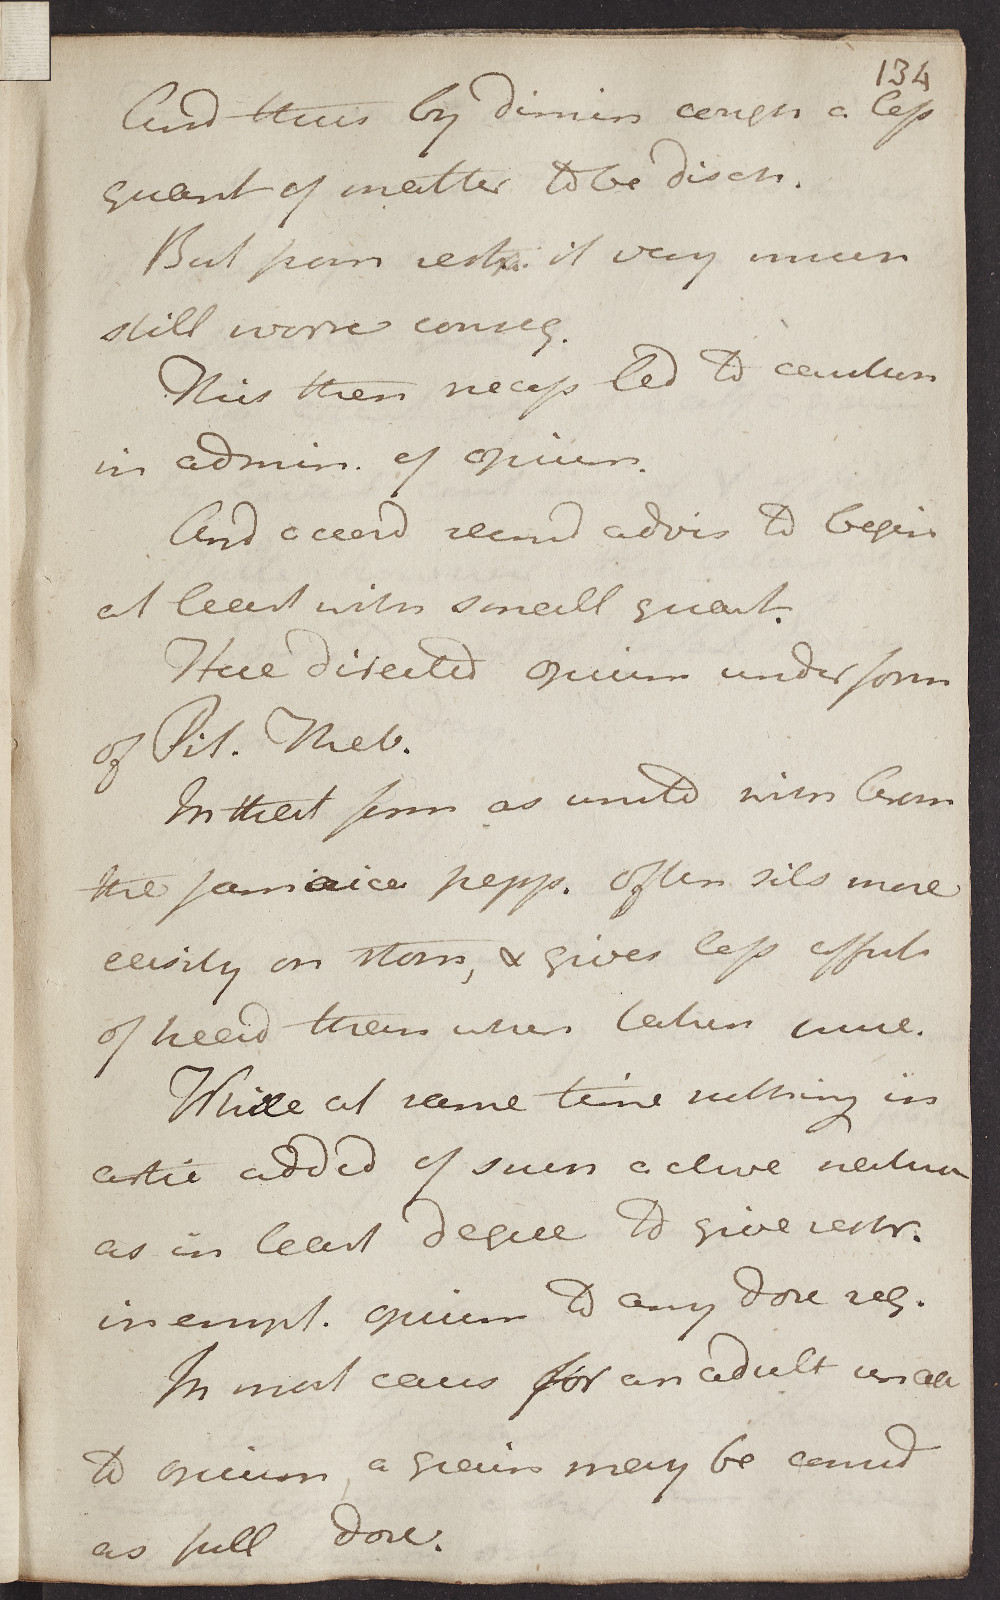 134
And thus by dimin cough a less
quant of matter to be disch.
But from restr. it very much
still worse conseq.
This then necess led to caution
in admin. of opium.
And accord recmd advis to begin
at least with small quant.
Have directed opium under form
of Pil. Theb.
In that form as united with
the Jamaica pepp. often sits more
easily on stom, & gives less effects
of head than when taken
While at same time nothing in
added of such active nature
as in least degree to give restr.
in empl. opium to any dose req.
In most cases for an adult
to opium, a grain may be
as full dose.